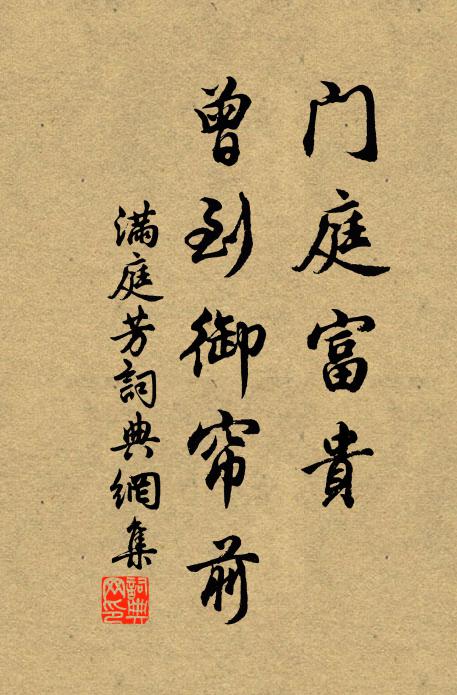 门庭富貴
曾到御帘前
滿庭芳詞典網集
詞典網印